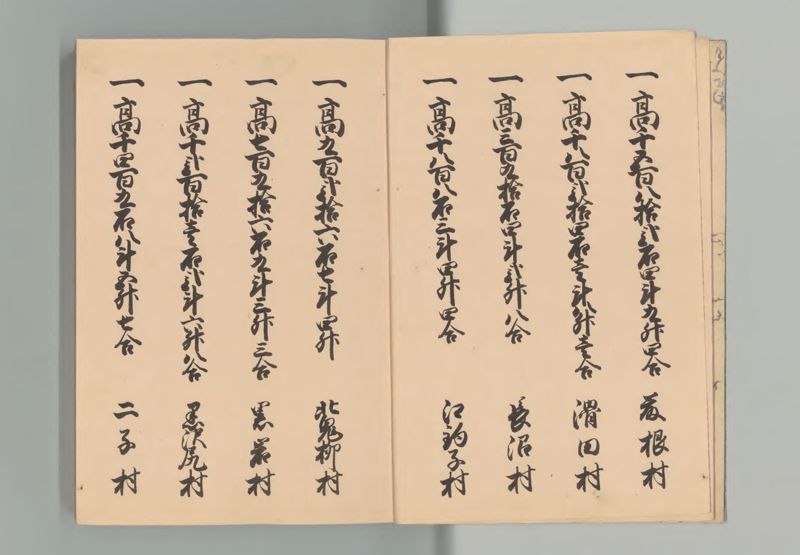 一 高千五百八拾弐石四斗九升四合 藤根村
一 高千八百弐拾四石壱斗八升壱合 滑田村
一 高三百九拾石四斗弐升八合 長沼村
一 高千八百八石三斗四升四合 江釣子村
一 高九百弐拾六石七斗四升 北鬼柳村
一 高七百九拾六石九斗三升三合 黒岩村
一 高千弐百拾壱石弐斗六升八合 黒沢尻村
一 高千四百九石八斗五升七合 二子村